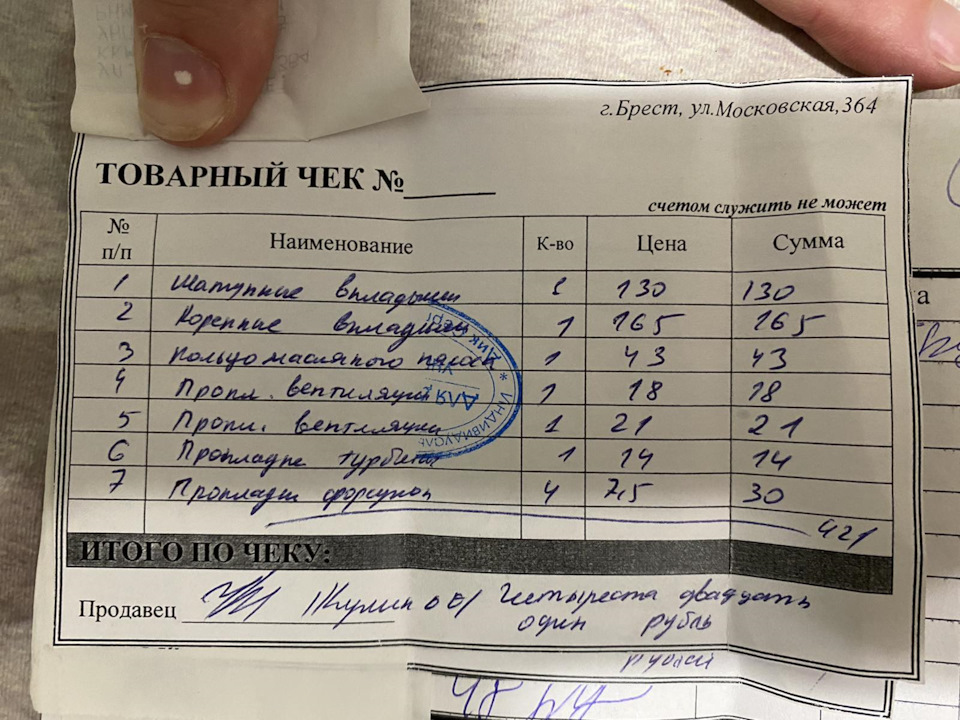 г.Брест, ул.Московская,364
ТОВАРНЫЙ ЧЕК №
счетом служить не может
№ п/п Наименование К-во Цена Сумма
1 Шатунные вкладыши 1 130 130
2 Коренные вкладыши 1 165 165
3 Кольцо масляного насоса 1 43 43
4 Прокл. вентиляции 1 18 18
5 Прокл. вентиляции 1 21 21
6 Прокладка турбины 1 14 14
7 Прокладки форсунок 4 7,5 30
421
ИТОГО ПО ЧЕКУ:
Продавец Четыреста двадцать
один рубль